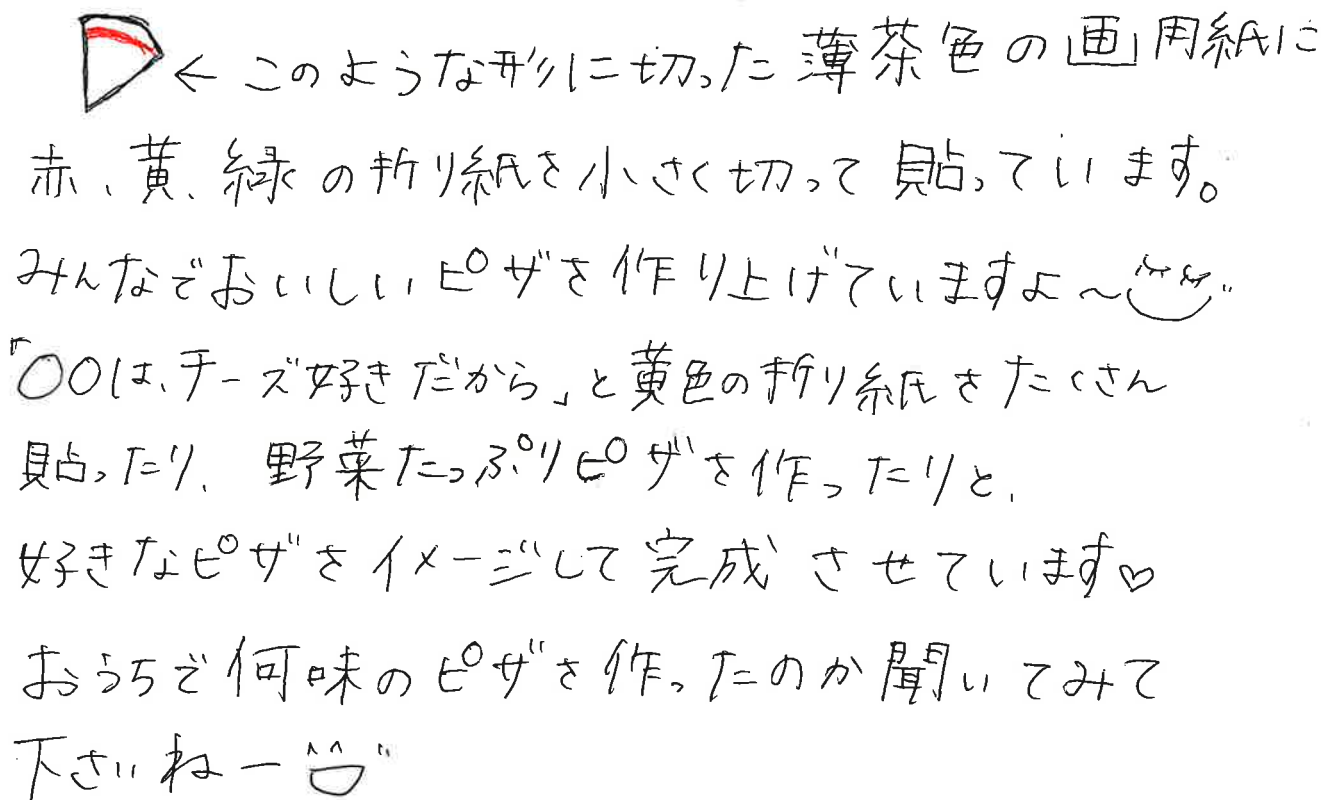 ← このような形に切った薄茶色の画用紙に
赤、黄、緑の折り紙を小さく切って貼っています。
みんなでおいしいピザを作り上げていますよ〜
「〇〇は、チーズ好きだから」と黄色の折り紙をたくさん
貼ったり、野菜たっぷりピザを作ったりと、
好きなピザをイメージして完成させています♡
おうちで何味のピザを作ったのか聞いてみて
下さいねー